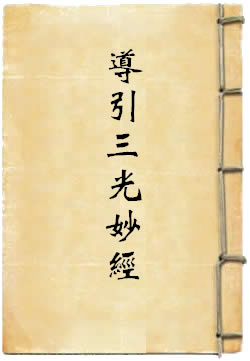 導引三光妙經